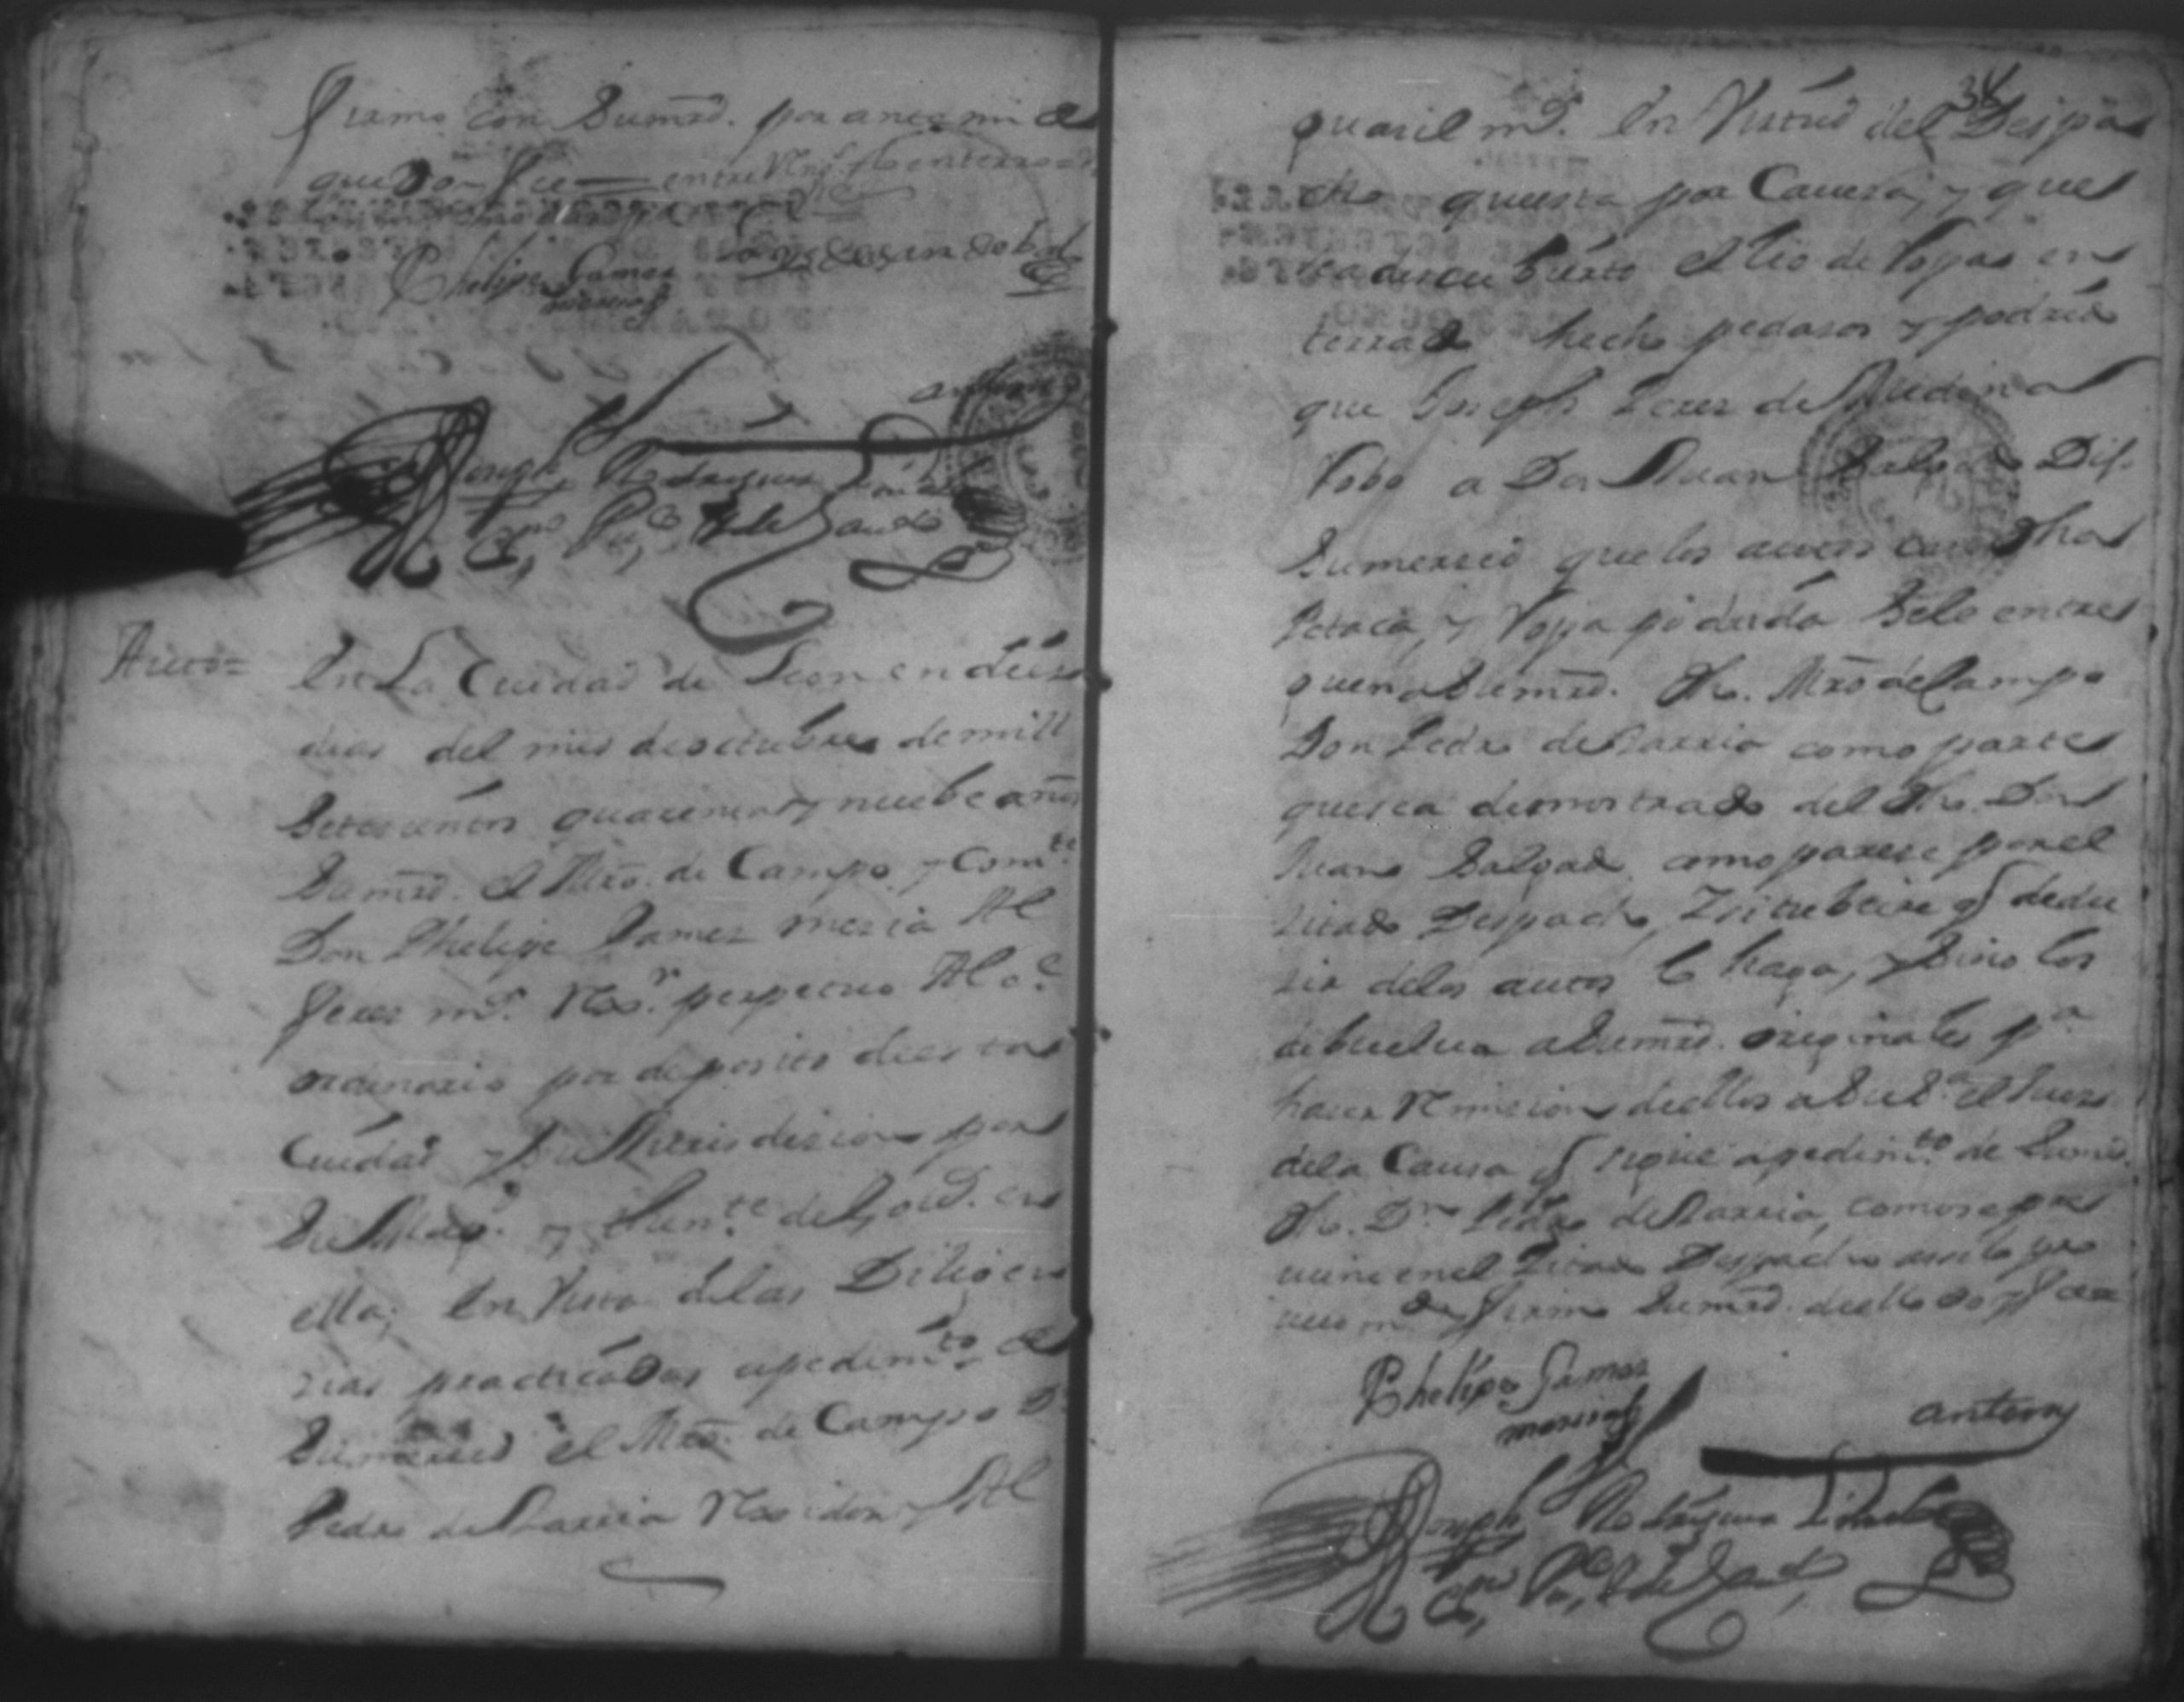 firmo con Sumrd. por ante mi de
que Doy fee — entre Rengs
Phelipe Gamez
messia
ante my
Joseph Rodriguez
Essno Pco
Auto=
En La Ciudad de Leon en diez
dias del mes de octubre de mill
Setesientos quarenta y nuebe años
Sumrd. el Mro. de Campo y Comte
Don Phelipe Gamez mesia Al
ferez mr. Rexr. perpetuo Alce
ordinario por deposito de esta
Ciudad y su Jurisdizion por
Su Magd. y thente de Govr. en
ella; En Vista de las Diligen
zias practicadas a pedimto de
Sumerced el Mro. de Campo Dn
Pedro de Sarria Rexidor y Al
38
guazil mr. En Virtud del Despa
cho questa por Cavesa, y que
sea descubierto el lio de Ropas en
terrado hecho pedasos y podrido
que Joseph Perez de Medina
Robo a Don Juan Salgado Dijo
Sumerced que los autos con dha
Petaca, y Ropa podrida Se le entre
guen a Sumrd. dho. Mro de Campo
Don Pedro de Sarria como parte
que sea demostrado del dho. Don
Juan Salgado como parese por el
sitado Despacho, Y si tubiere q dedu
zir de los autos lo haga, y Sino los
debuelva a Sumrd. originales pa
hacer Remision de ellos a Sud. el Juez
de la Causa q sigue a pedimto de Sumrd.
dho. Dn Pedro de Sarria, como se pre
viene en el zitado Despacho asi lo pro
veio mdo y firmo Sumrd. de ello doy fee
Phelipe Gamez
messia
ante my
Joseph Rodriguez
Essno Pco